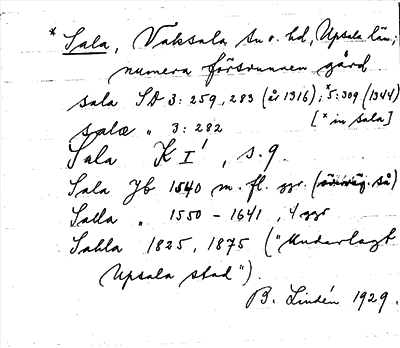 * Sala, Vaksala sn o. hd, Upsala län;
numera försvunnen gård
sala SD 3: 259, 283 (år 1316); *5: 309 (1344)
salæ " 3: 282 [* in sala]
Sala K I', s. 9.
Sala Jb 1540 m. fl. ggr. så)
Salla " 1550 - 1641, 4 ggr
Sahla 1825, 1875 ("Underlagt
Upsala stad").
B. Lindén 1929.